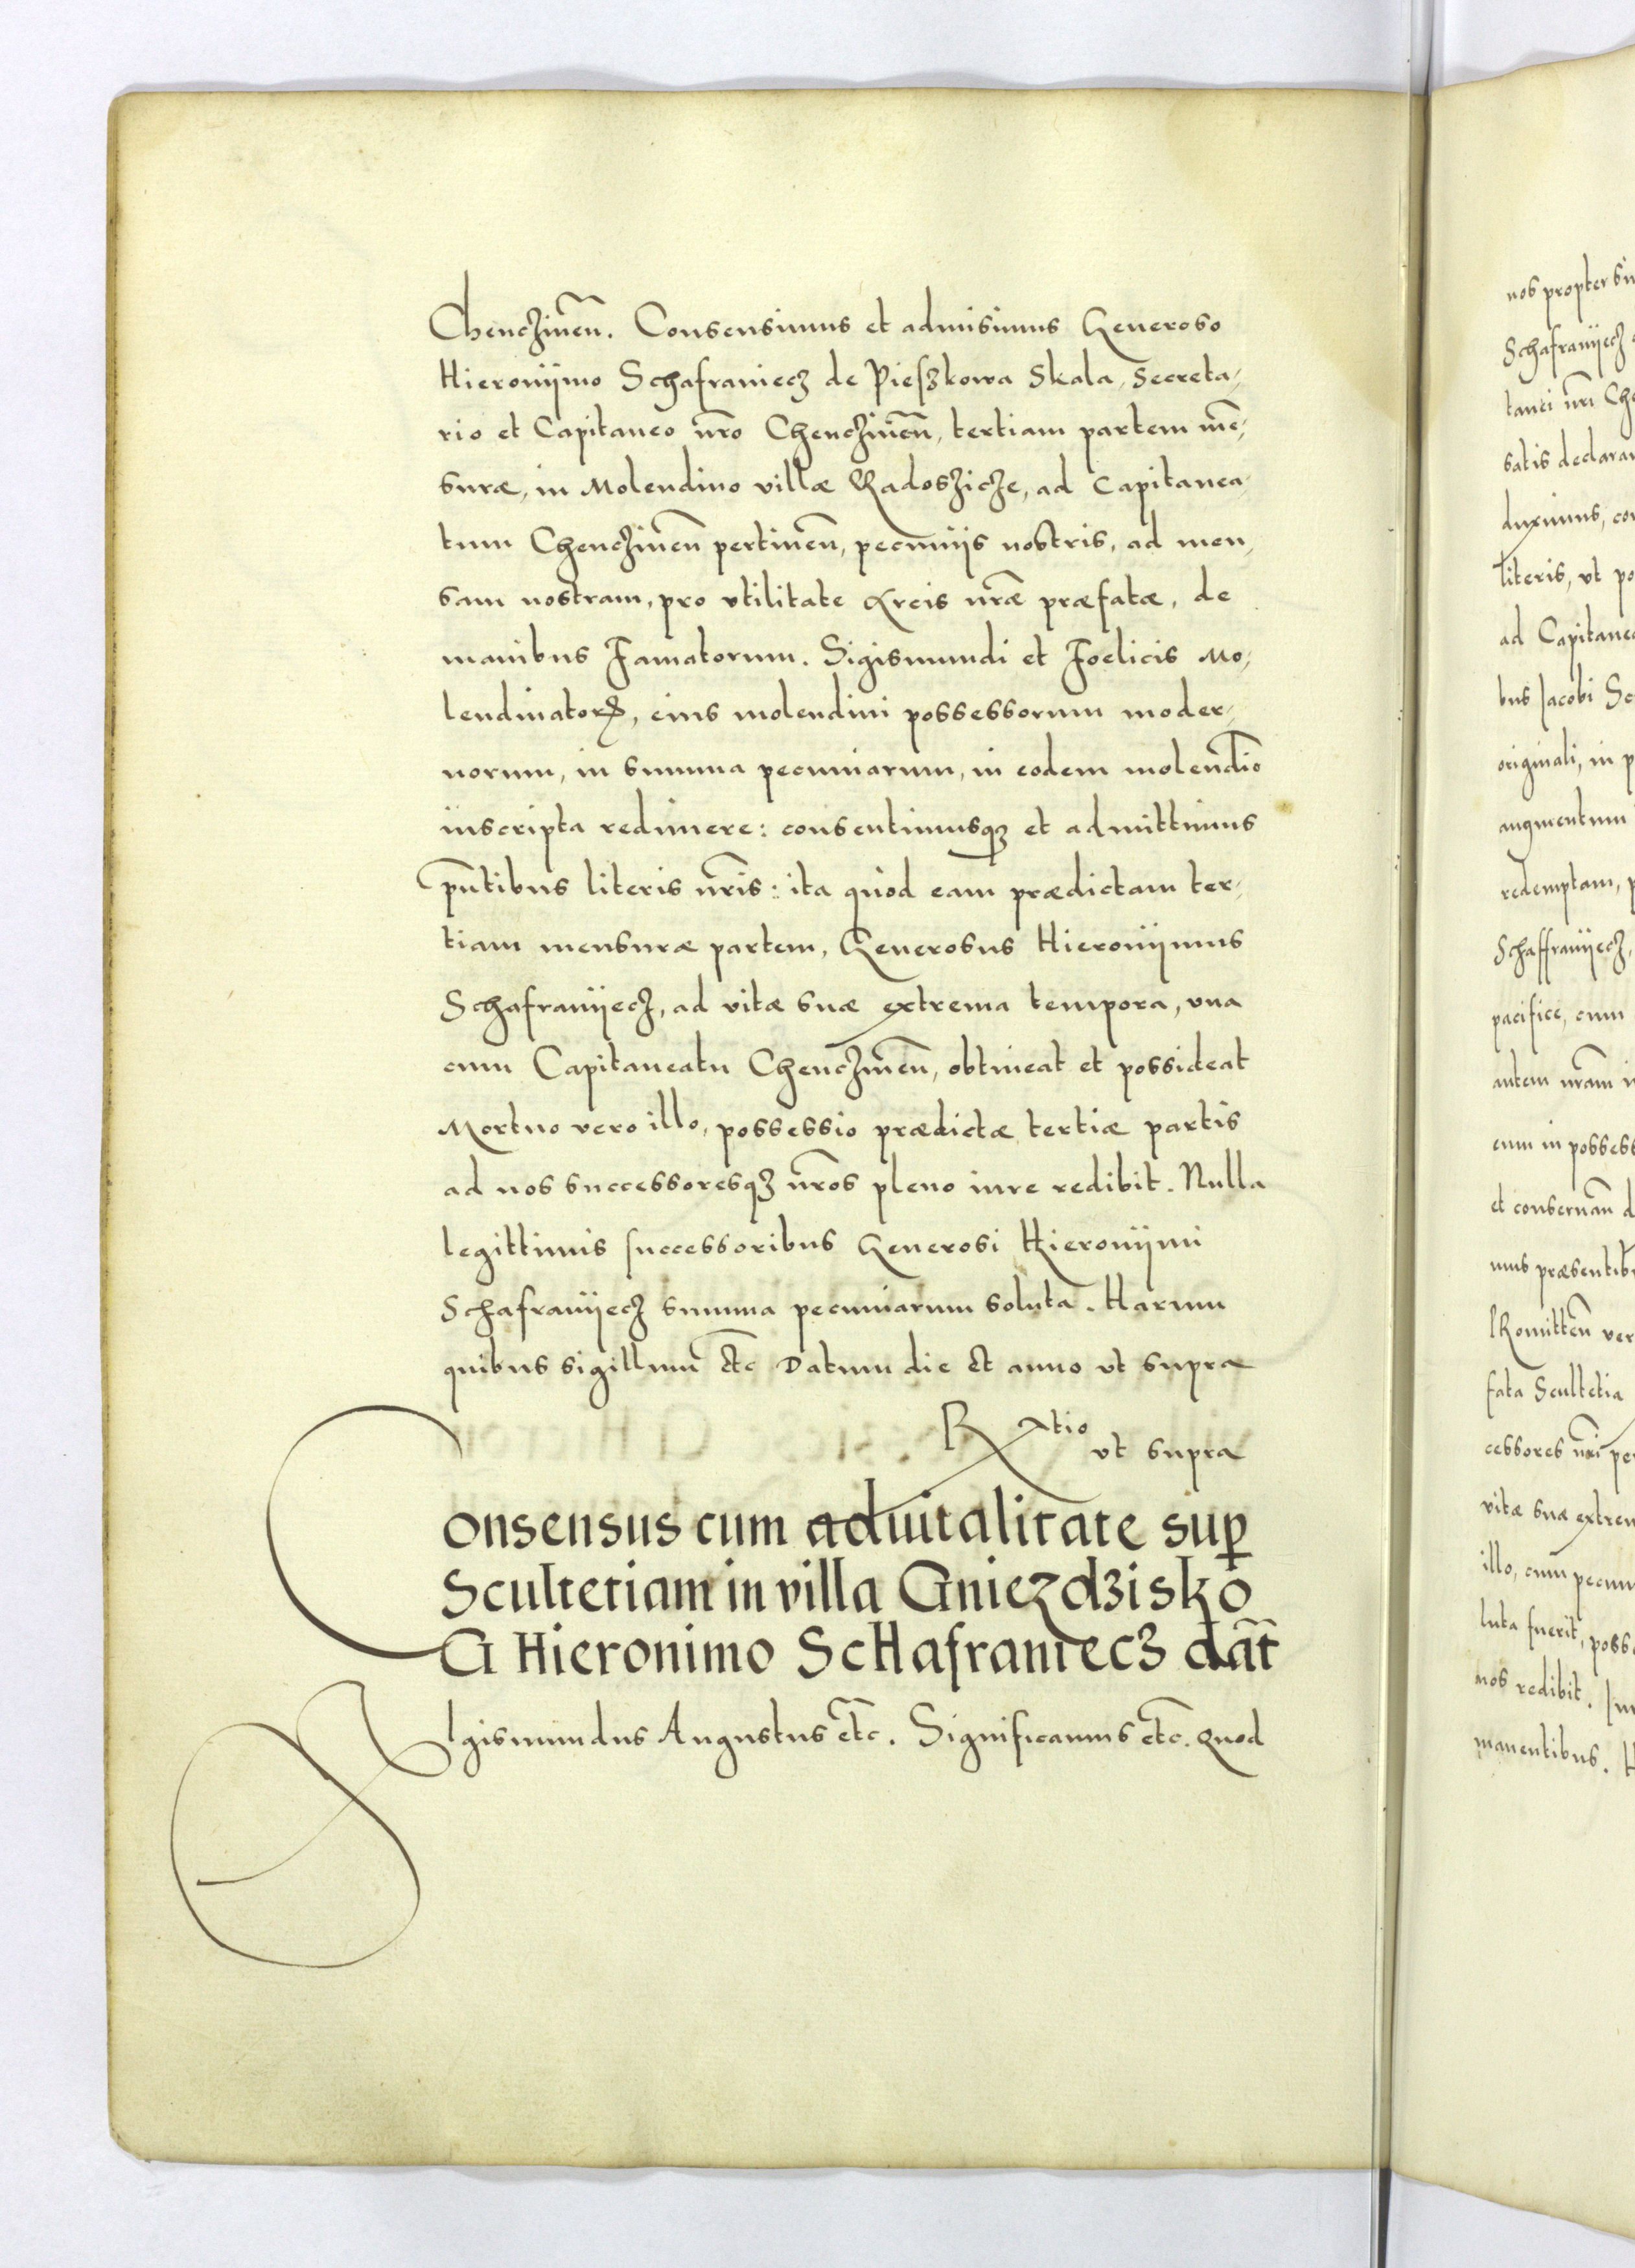 Chenczineñ. Consensimus et admisimus Generoso
Hieronÿmo Schafraniecz de Pieſzkowa Skala, Secreta,
rio et Capitaneo ñro Chenczineñ, tertiam partem mẽ,
suræ, in Molendino villæ Radoszicze, ad Capitanea,
tum Chenczineñ pertineñ, pecunijs nostris, ad men,
sam nostram, pro vtilitate Arcis nr̃æ præfatæ, de
manibus Famatorum. Sigismundi et Foelicis Mo,
lendinatorꝝ, eius molendini possessorum moder,
norum, in summa pecuniarum, in eodem molendĩo
inscripta redimere: consentimusqꝫ et admittimus
pñtibus literis nr̃is: ita quòd eam prædictam ter,
tiam mensuræ partem, Generosus Hieronÿmus
Schafranÿecz, ad vitæ suæ extrema tempora, vna
cum Capitaneatu Chenczineñ, obtineat et possideat
Mortuo vero illo, possessio prædictæ tertiæ partis
ad nos successoresqꝫ nr̃os pleno iure redibit. Nulla
legittimis successoribus Generosi Hieronÿmi
Schafranÿecz summa pecuniarum soluta. Harum
quibus sigillum etc̃ Datum die et anno vt supra
R̃tio
vt supra
Consensus cum aduitalitate suꝑ
Scultetiam in villa Gniezdzisko
G Hieronimo Schafraniecz dat̃
SIgismundus Augustus etc̃. Significamus etc̃. Quod
nos propter
Schafranÿecz
tanei nr̃i
satis
duximus,
literis, vt
ad
bus Jacobi
originali, in
augmentum
redemptam,
Schaffranÿecz,
pacifice, cum
autem nr̃am
eum in
et
mus
Romitteñ
fata Scultetia
cessores nr̃i
vitæ suæ
illo, cum
luta fuerit,
nos redibit.
manentibus.